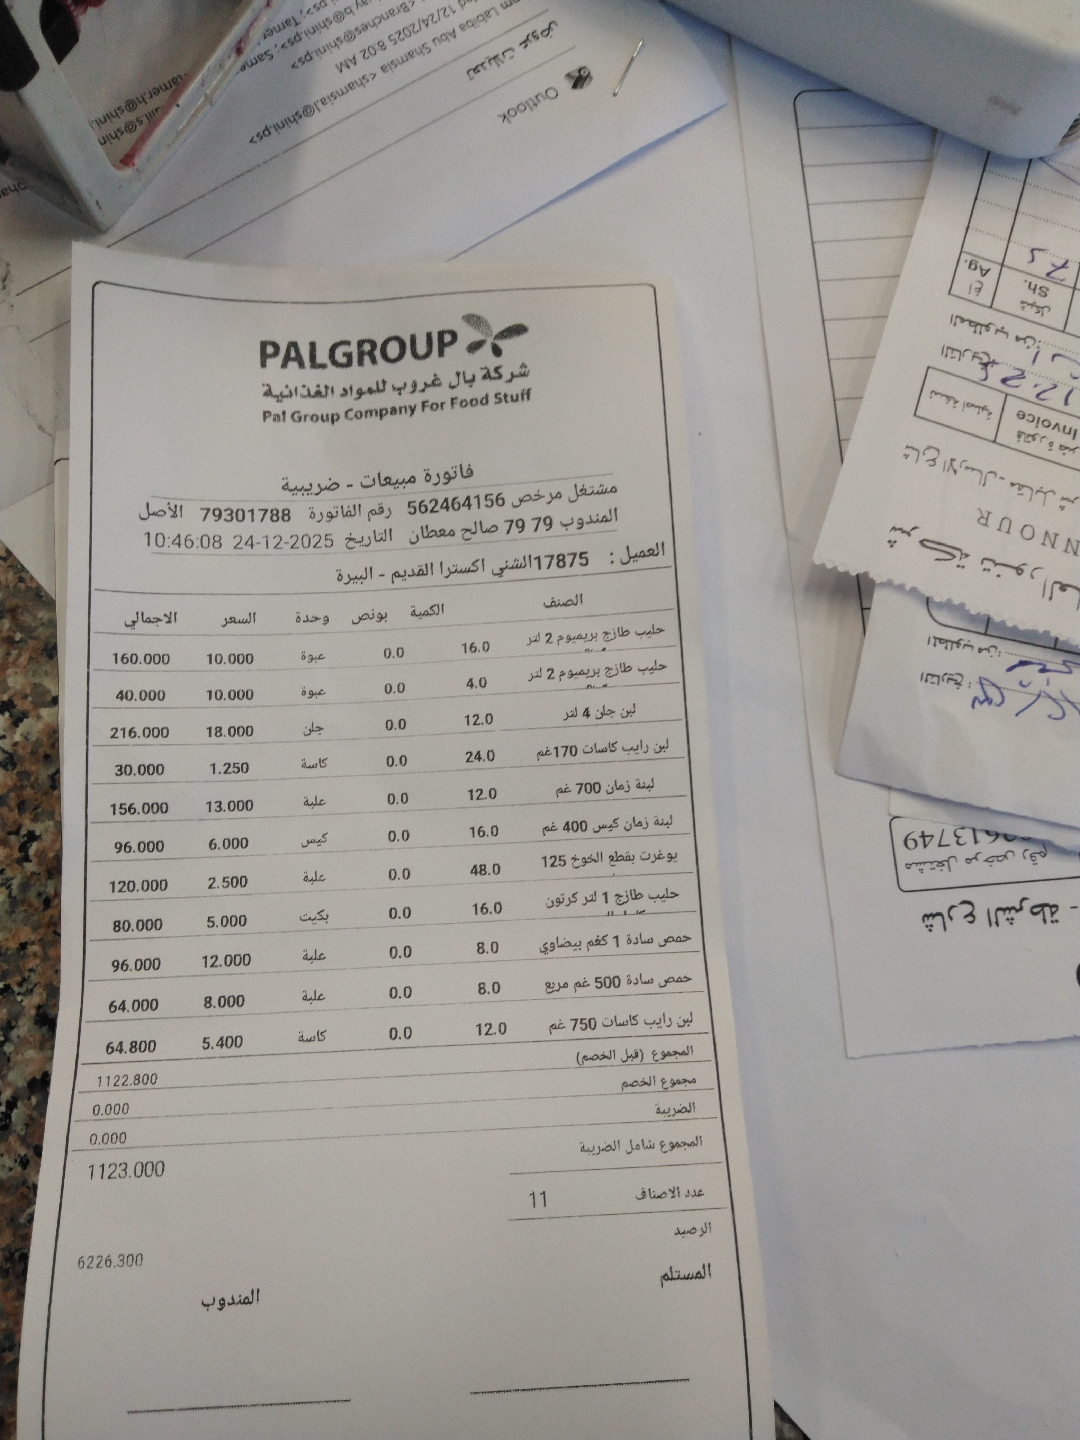 PALGROUP
شركة بال غروب للمواد الغذائية
Pal Group Company For Food Stuff
فاتورة مبيعات - ضريبية
مشتغل مرخص 562464156 رقم الفاتورة 79301788 الأصل
المندوب 79 79 صالح معطان التاريخ 24-12-2025 10:46:08
العميل : 17875الشني اكسترا القديم - البيرة
الصنف الكمية بونص وحدة السعر الاجمالي
حليب طازج بريميوم 2 لتر 16.0 0.0 عبوة 10.000 160.000
حليب طازج بريميوم 2 لتر 4.0 0.0 عبوة 10.000 40.000
لبن جلن 4 لتر 12.0 0.0 جلن 18.000 216.000
لبن رايب كاسات 170غم 24.0 0.0 كاسة 1.250 30.000
لبنة زمان 700 غم 12.0 0.0 علبة 13.000 156.000
لبنة زمان كيس 400 غم 16.0 0.0 كيس 6.000 96.000
يوغرت بقطع الخوخ 125 48.0 0.0 علبة 2.500 120.000
حليب طازج 1 لتر كرتون 16.0 0.0 بكيت 5.000 80.000
حمص سادة 1 كغم بيضاوي 8.0 0.0 علبة 12.000 96.000
حمص سادة 500 غم مربع 8.0 0.0 علبة 8.000 64.000
لبن رايب كاسات 750 غم 12.0 0.0 كاسة 5.400 64.800
المجموع (قبل الخصم) 1122.800
مجموع الخصم 0.000
الضريبة 0.000
المجموع شامل الضريبة 1123.000
عدد الاصناف 11
الرصيد 6226.300
المستلم المندوب
Outlook
تعديلات عروض
Labiba Abu Shamsia <shamsia.l@shini.ps>
12/24/2025 8:02 AM
<Branches@shini.ps>
اغ Ag.
شيكل Sh.
المطلوب من:
التاريخ
نسخة اصلية
Invoice
شارع الارسال - مقابل
NNOUR
شركة تنور
المطلوب من:
التاريخ:
613749
مشتغل مرخص رقم
شارع الشرطة -